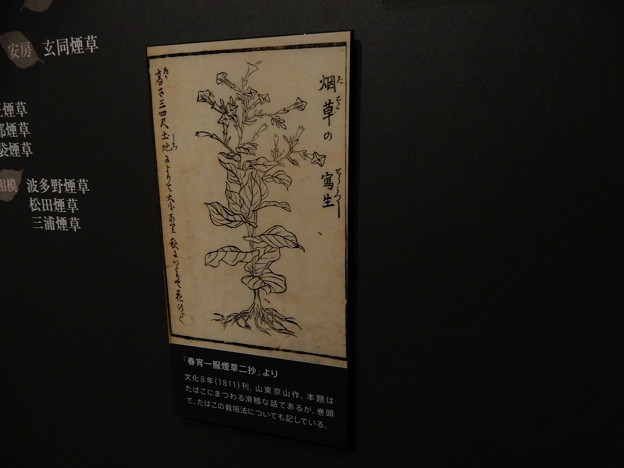 安房 玄同煙草
煙草
煙草
煙草
相模 波多野煙草
松田煙草
三浦煙草
烟草の寫生
たばこ
高さ三四尺土地によりて大小あり秋にいたりて花ひらく
『春宵一服煙草二抄』より
文化8年(1811)刊。山東京山作。本題は
たばこにまつわる滑稽な話であるが、巻頭
で、たばこの栽培法についても記している。